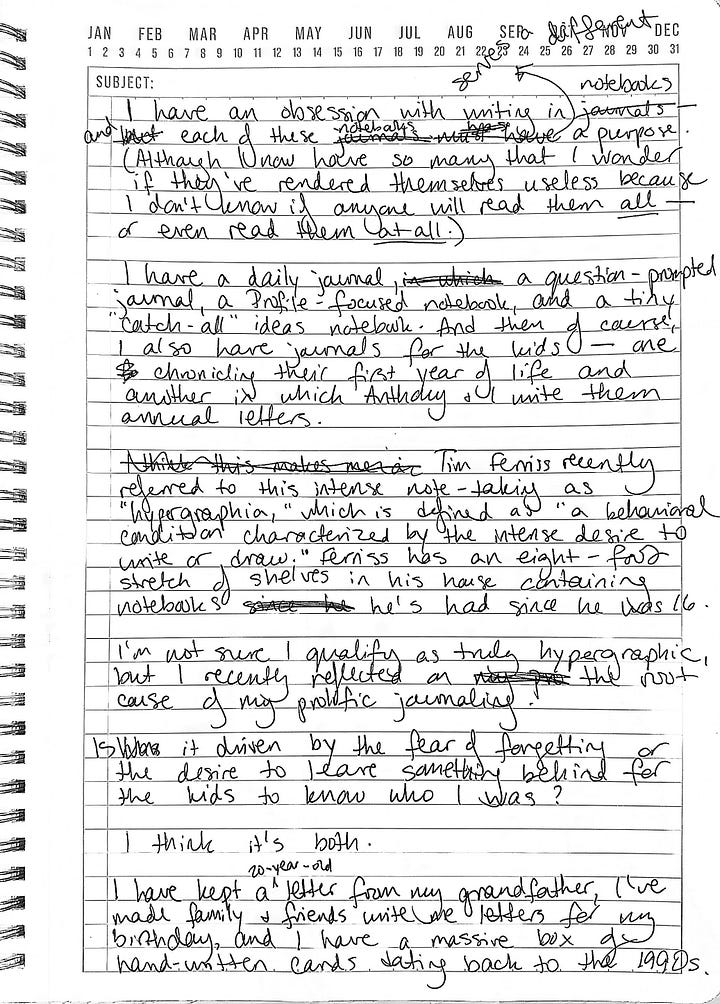 JAN FEB MAR APR MAY JUN JUL AUG SEP OCT NOV DEC
1 2 3 4 5 6 7 8 9 10 11 12 13 14 15 16 17 18 19 20 21 22 23 24 25 26 27 28 29 30 31
serves a different
SUBJECT:
notebooks
I have an obsession with writing in journals —
and but each of these journals must have a purpose.
notebooks have
(Although I now have so many that I wonder
if they've rendered themselves useless because
I don't know if anyone will read them all —
or even read them at all.)
I have a daily journal, in which a question-prompted
journal, a Profile-focused notebook, and a tiny
"catch-all" ideas notebook. And then of course,
I also have journals for the kids — one
chronicling their first year of life and
another in which Anthony & I write them
annual letters.
I think this makes me Tim Ferriss recently
referred to this intense note-taking as
"hypergraphia," which is defined as "a behavioral
condition characterized by the intense desire to
write or draw." Ferriss has an eight-foot
stretch of shelves in his house containing
notebooks since he he's had since he was 16.
I'm not sure I qualify as truly hypergraphic,
but I recently reflected on the root
cause of my prolific journaling.
Is Was it driven by the fear of forgetting or
the desire to leave something behind for
the kids to know who I was?
I think it's both.
20-year-old
I have kept a ^ letter from my grandfather, I've
made family & friends write me letters for my
birthday, and I have a massive box of
hand-written cards dating back to the 1990s.